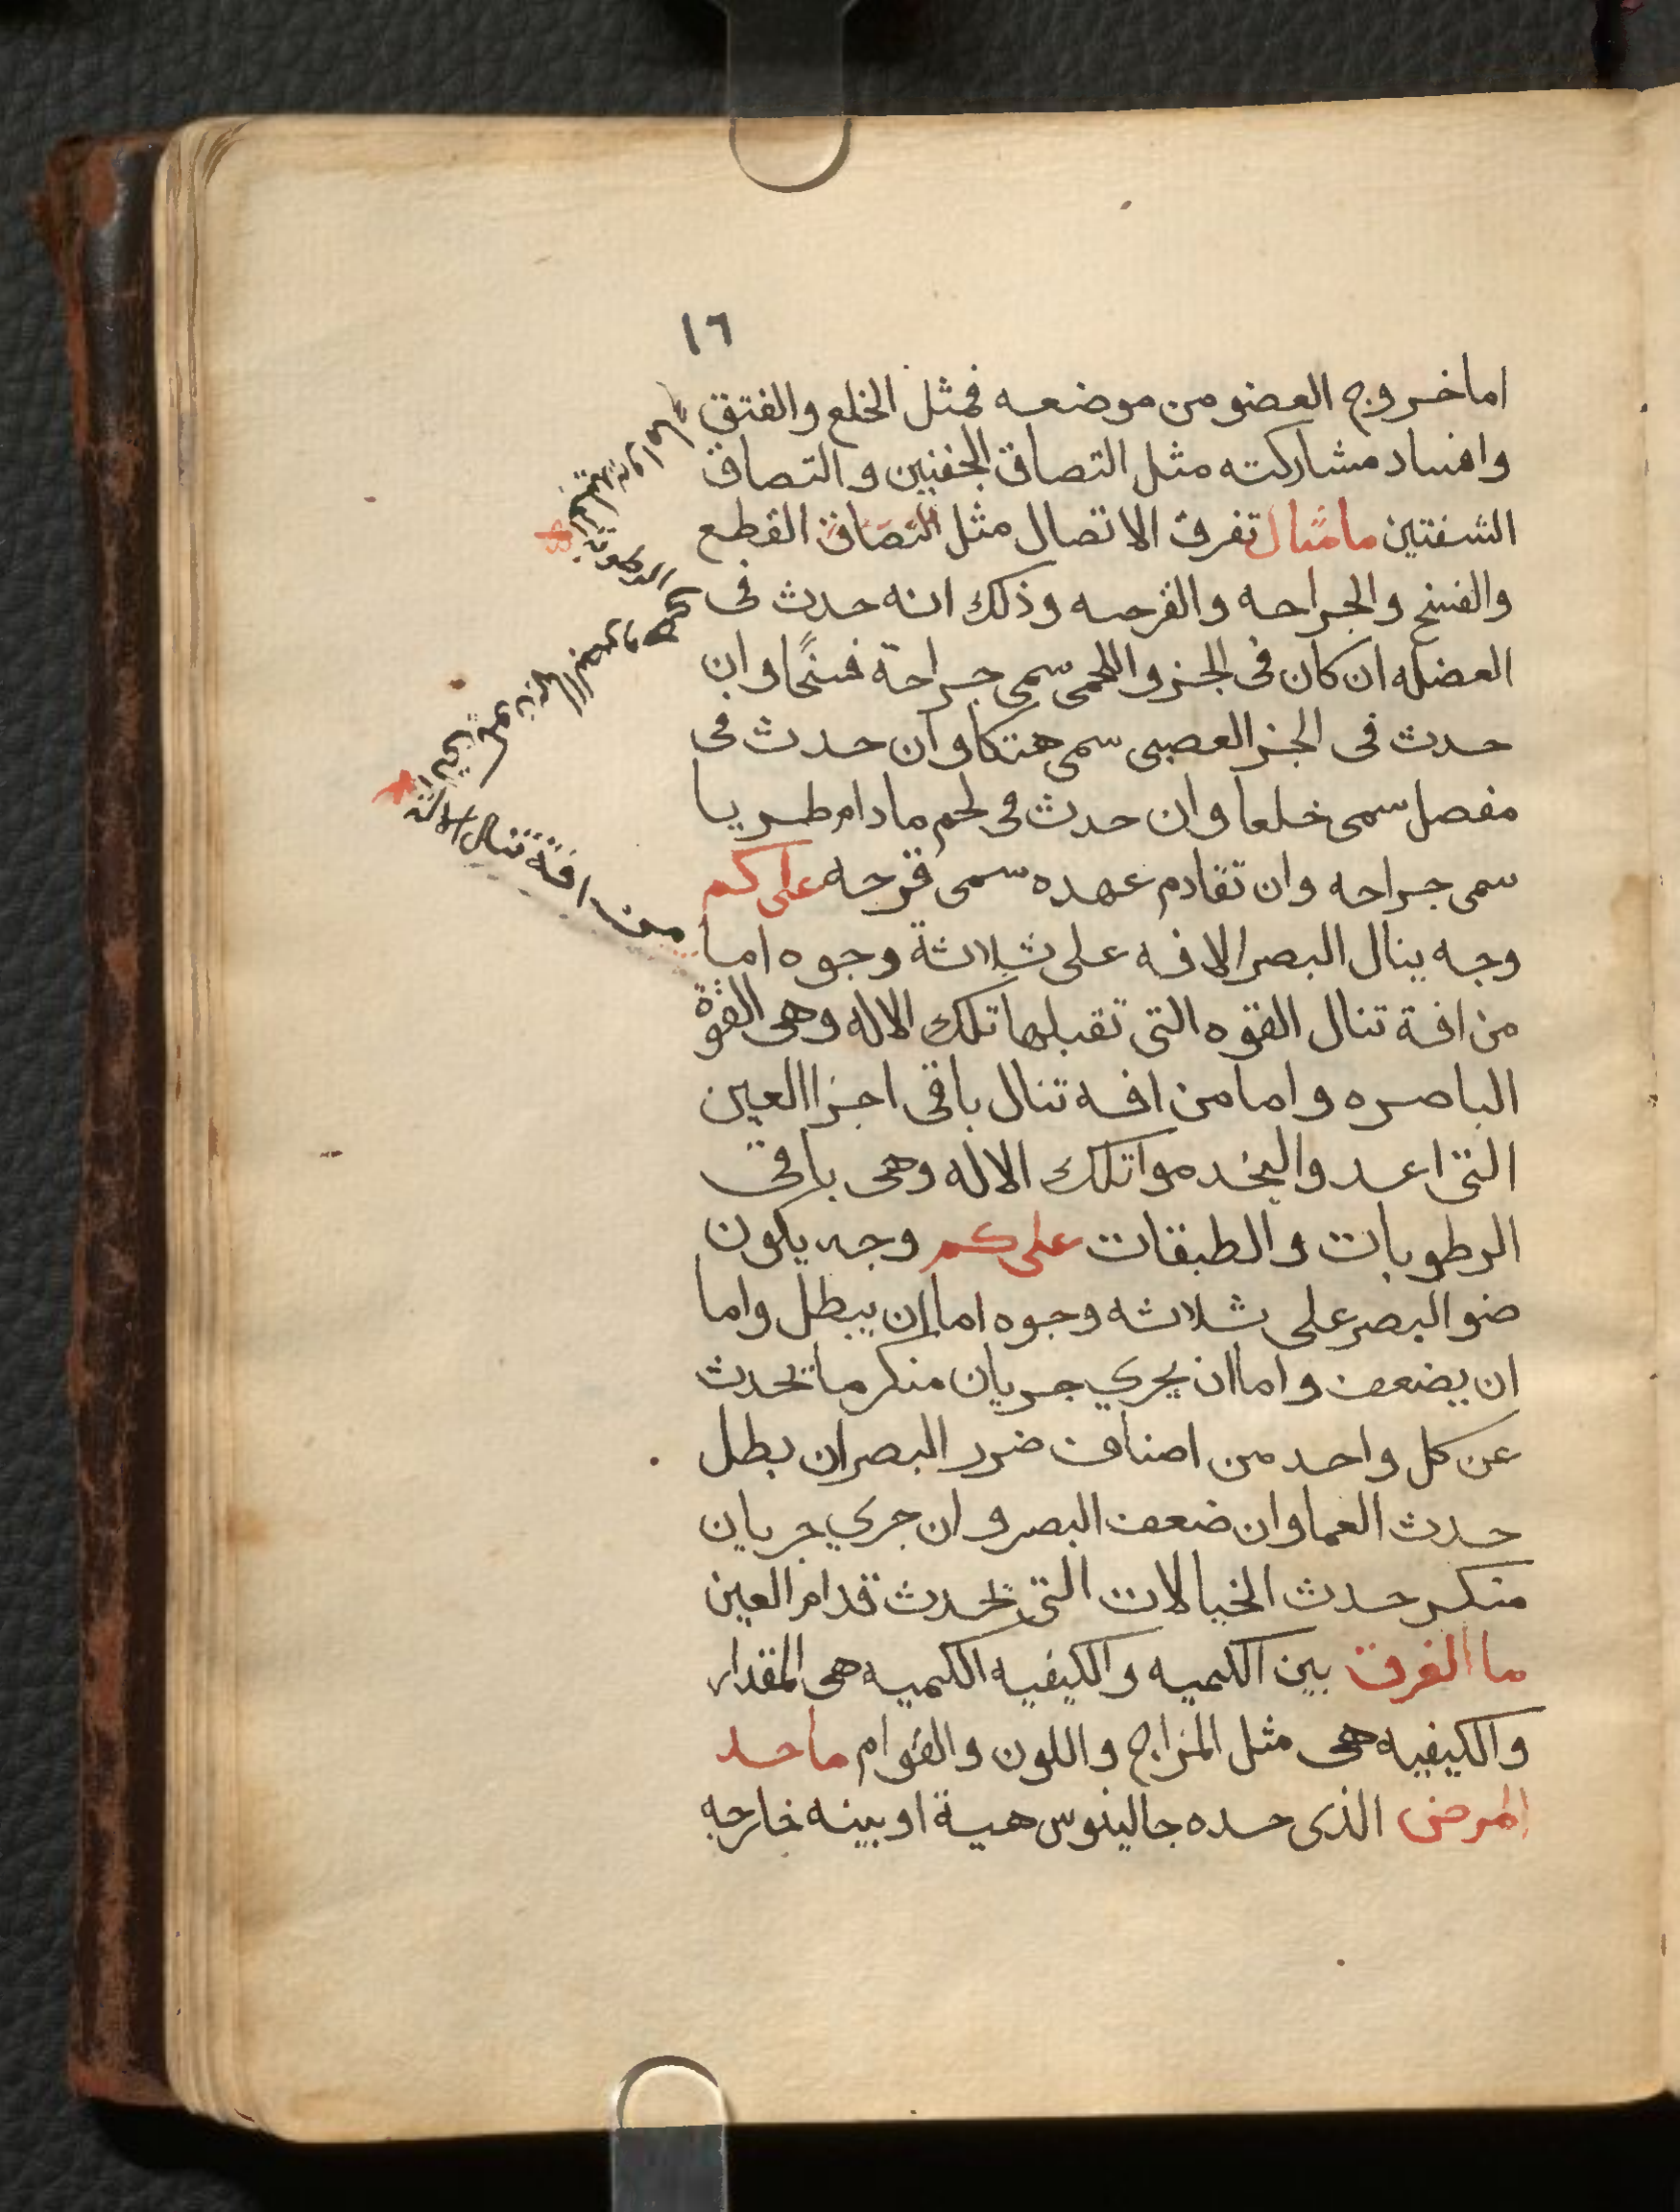 ١٦
اما خروج العضو من موضعه فمثل الخلع والفتق
وافساد مشاركته مثل التصاق الجفنين والتصاق
الشفتين ما مثال تفرق الاتصال مثل التصاق القطع
والفسخ والجراحه والقرحه وذلك انه حدث فى
العضله ان كان فى الجزو اللحمى سمى جراحة فسخًا وان
حدث فى الجز العصبى سمى هتكا وان حدث فى
مفصل سمى خلعا وان حدث فى لحم مادام طريا
سمى جراحه وان تقادم عهده سمى قرحه على كم
وجه ينال البصر الافه على ثلاثة وجوه اما
من افة تنال القوه التى تقبلها تلك الاله وهى القوة
الباصره واما من افه تنال باقى اجزا العين
التى اعدو اليخدموا تلك الاله وهى باقى
الرطوبات والطبقات على كم وجه يكون
ضو البصر على ثلاثه وجوه اما ان يبطل واما
ان يضعف واما ان يجري جريان منكر ما تحدث
عن كل واحد من اصناف ضرر البصر ان بطل
حدث العما وان ضعف البصر وان جري جريان
منكر حدث الخيالات التى تحدث قدام العين
ما الفرق بين الكميه والكيفيه الكميه هى المقدار
والكيفيه هى مثل المزاج واللون والقوام ما حد
المرض الذى حده جالينوس هية او بينه خارجه
من افة تنال الالة